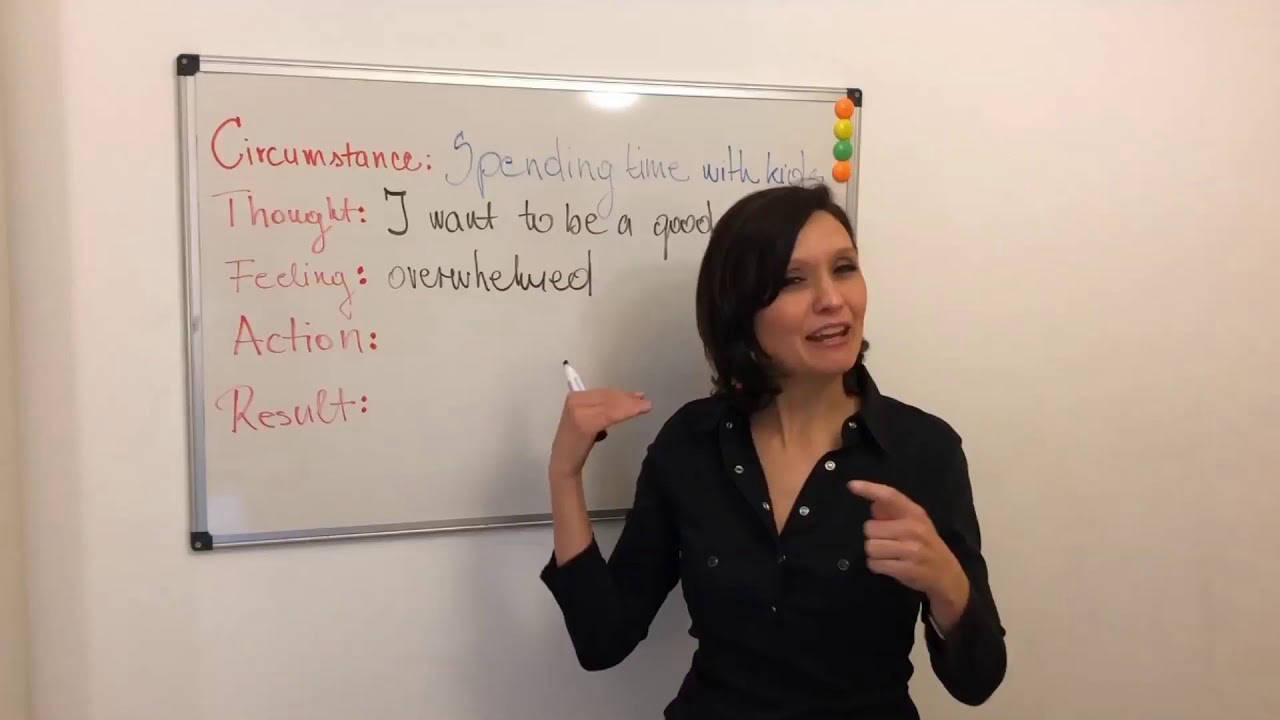 Circumstance: Spending time with kids
Thought: I want to be a good
Feeling: overwhelmed
Action:
Result: